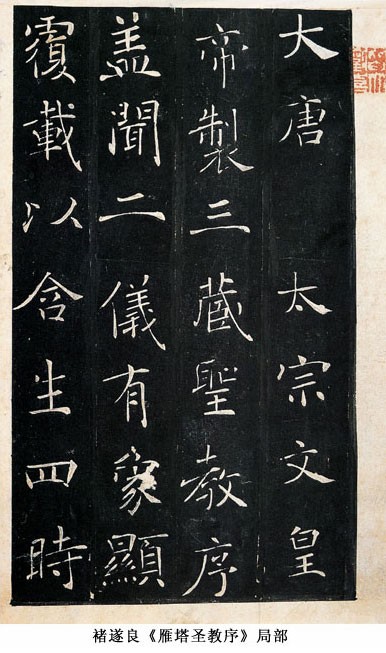 大唐 太宗文皇
帝製三蔵聖教序
盖聞二儀有象顯
覆載以含生四時
褚遂良《雁塔圣教序》局部